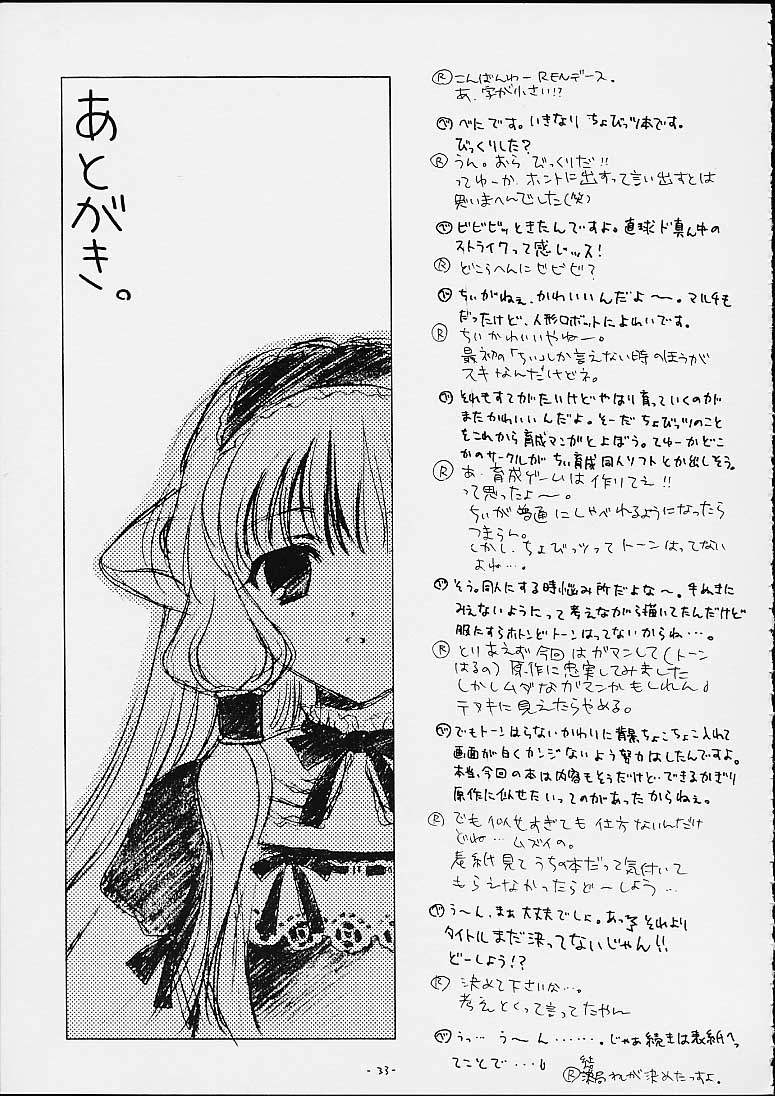 あとがき。
Ⓡ こんばんわー RENデース。
あ、字が小さい!?
㋬ べにです。いきなり ちょびッツ本です。
びっくりした?
Ⓡ うん。おら びっくりだ!!
ってゆーか ホントに出すって言い出すとは
思いまへんでした(笑)
㋬ ビビビッときたんですよ。直球ド真ん中の
ストライクって感じッス!
Ⓡ どこらへんにビビビ?
㋬ ちぃがねぇ、かわいいんだよ〜。マルチも
だったけど、人形ロボットによわいです。
Ⓡ ちぃかわいいやねー。
最初の「ちぃ」しか言えない時のほうが
スキなんだけどネ。
㋬ それもすてがたいけどやはり育っていくのが
またかわいいんだよ。そーだ ちょびッツのこと
をこれから育成マンガとよぼう。てゆーかどこ
かのサークルが ちぃ育成同人ソフトとか出しそう。
Ⓡ あ、育成ゲームは 作りてェ!!
って思ったよ〜。
ちぃが普通にしゃべれるようになったら
つまらん。
しかし、ちょびッツってトーンはってない
よね…。
㋬ そう。同人にする時悩み所だよな〜。手ぬきに
みえないようにって考えながら描いてたんだけど
服にすらホトンどトーンはってないからね…。
Ⓡ とりあえず今回はガマンして(トーン
はるの)原作に忠実してみました
しかしムダながマンかもしれん。
テヌキに見えたらやめる。
㋬ でもトーンはらないかわいに背景ちょこちょこ入れて
画面が白くカンジないよう努力はしたんですよ。
本当、今回の本は内容もそうだけど…できるかぎり
原作に似せたいってのがあったからねぇ。
Ⓡ でも似せすぎても仕方ないんだけ
どね…ムズイの。
表紙見てうちの本だって気付いて
もらえなかったらどーしよう…
㋬ う〜ん、まぁ大丈夫でしょ。あっ それより
タイトルまだ決ってないじゃん!!
どーしよう!?
Ⓡ 決めて下さいな…。
考えとくって言ってたやん
㋬ うっ… う〜ん……。じゃあ続きは表紙へっ
てことで…。
Ⓡ 結局れんが決めたっすよ。
- 33 -